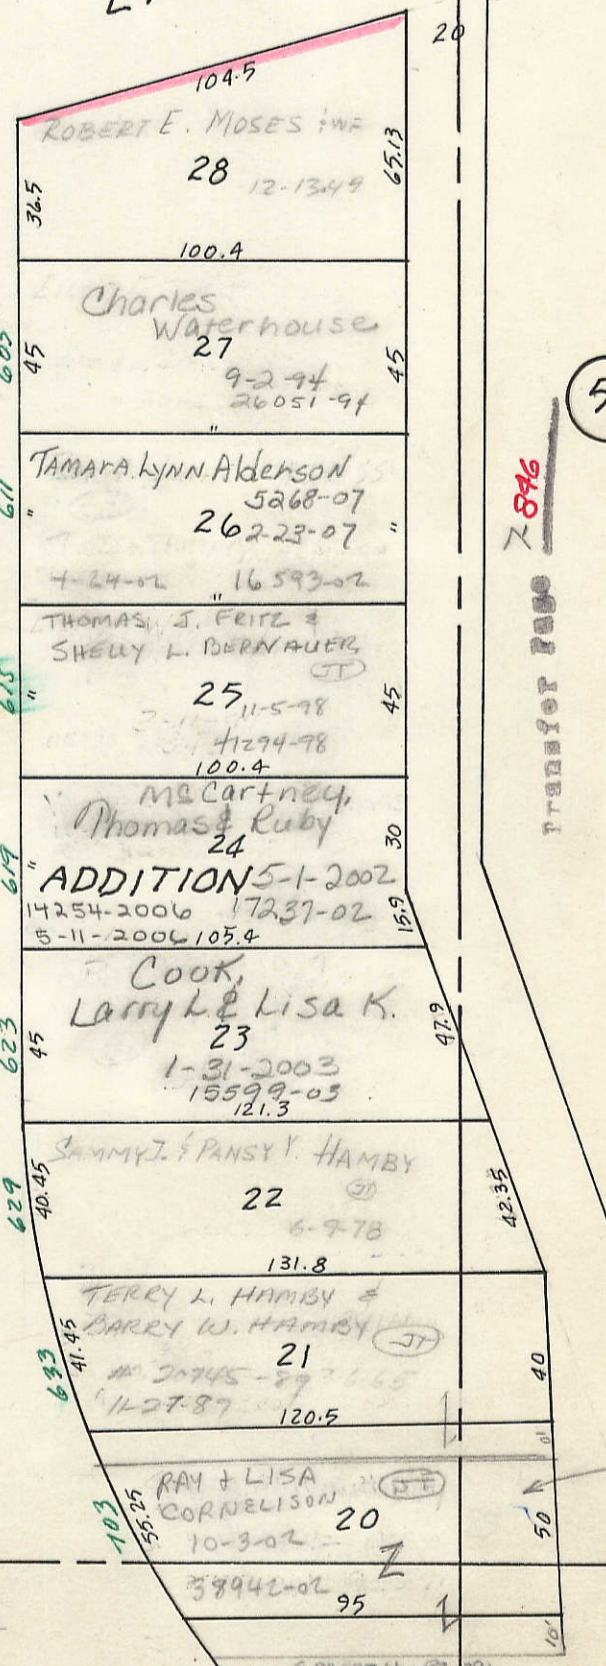 20
104.5
ROBERT E. MOSES & WF
28
12-13-49
36.5
65.13
100.4
Charles
Waterhouse
27
9-2-94
26051-94
45
45
"
TAMARA LYNN Alderson
5268-07
26 2-23-07
"
"
4-24-02 16593-02
"
611
846
5
Transfer Page
THOMAS J. FRITZ &
SHELLY L. BERNAUER
JT
25 11-5-98
41294-98
"
45
615
100.4
McCartney,
Thomas & Ruby
24
30
"
619
ADDITION 5-1-2002
14254-2006 17237-02
5-11-2006 105.4
15.9
Cook,
Larry L. & Lisa K.
23
1-31-2003
15599-03
121.3
623
45
47.9
SAMMY J. & PANSY Y. HAMBY
JT
22
6-9-78
131.8
629
40.45
42.35
TERRY L. HAMBY &
BARRY W. HAMBY JT
21
11-27-89
120.5
633
41.45
40
10'
RAY & LISA
CORNELISON
20
10-3-02
38942-02
95
703
55.25
50
10'